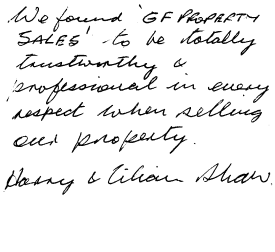 We found 'GF PROPERTY
SALES' to be totally
trustworthy &
professional in every
respect when selling
our property.
Harry & Lilian Shaw.